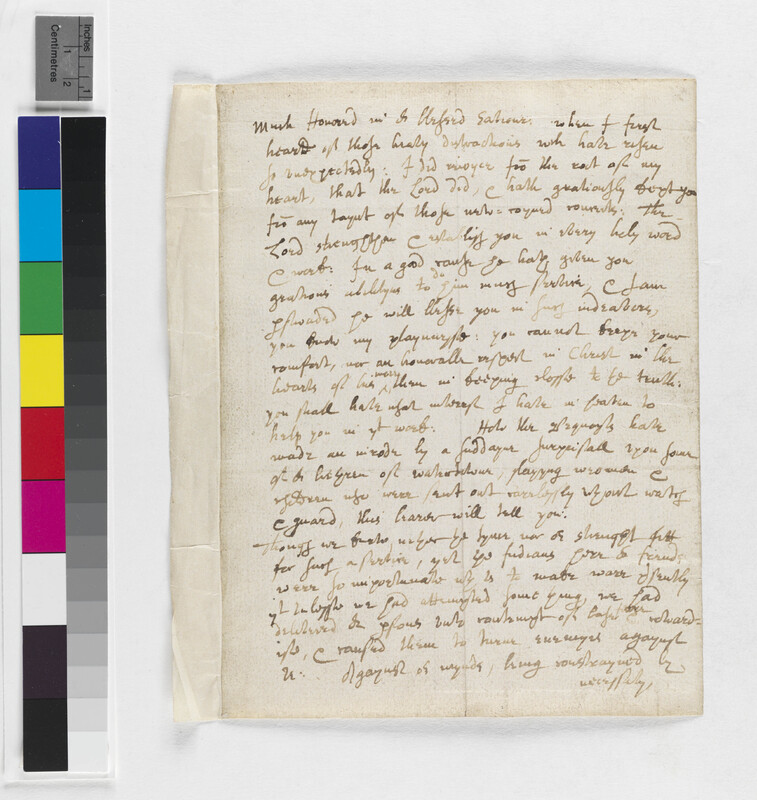 Much Honored in or blessed Saviour: when I first
heard of those heavy distractions wch have risen
so unexpectedly: I did rejoyce frō the root of my
heart, that the Lord did, & hath gratiously kept you
frō any taynt of those new-coyned conceits: The
Lord strengthen & establish you in every holy word
& work: In a good cause he hath given you
gratious abilityes to do him much service, & I am
pswaded he will blesse you in such indeavors,
you know my playnnesse: you cannot keepe your
comfort, nor an honorable respect in Christ in the
hearts of his, more then in keeping closse to ye truth:
you shall have what interest I have in heaven to
help you in yt work. How the Pequoyts have
made an inrode by a suddayne surpisall upon some
of or brethren of Watertowne, slaying woomen &
children who were sent out carelessly wthout watch
& guard, this bearer will tell you:
Though we knew neyther ye tyme nor or strenght fitt
for such a service, yet ye Indians here or frends
were so importunate wth us to make warr psently
yt unlesse we had attempted some thing, we had
delivered or psons unto contempt of base feare & coward-
ise, & caused them to turne enemyes agaynst
us: Agaynst or mynds, being constrayned by
necessity,
Inches
Centimetres
1
2
1